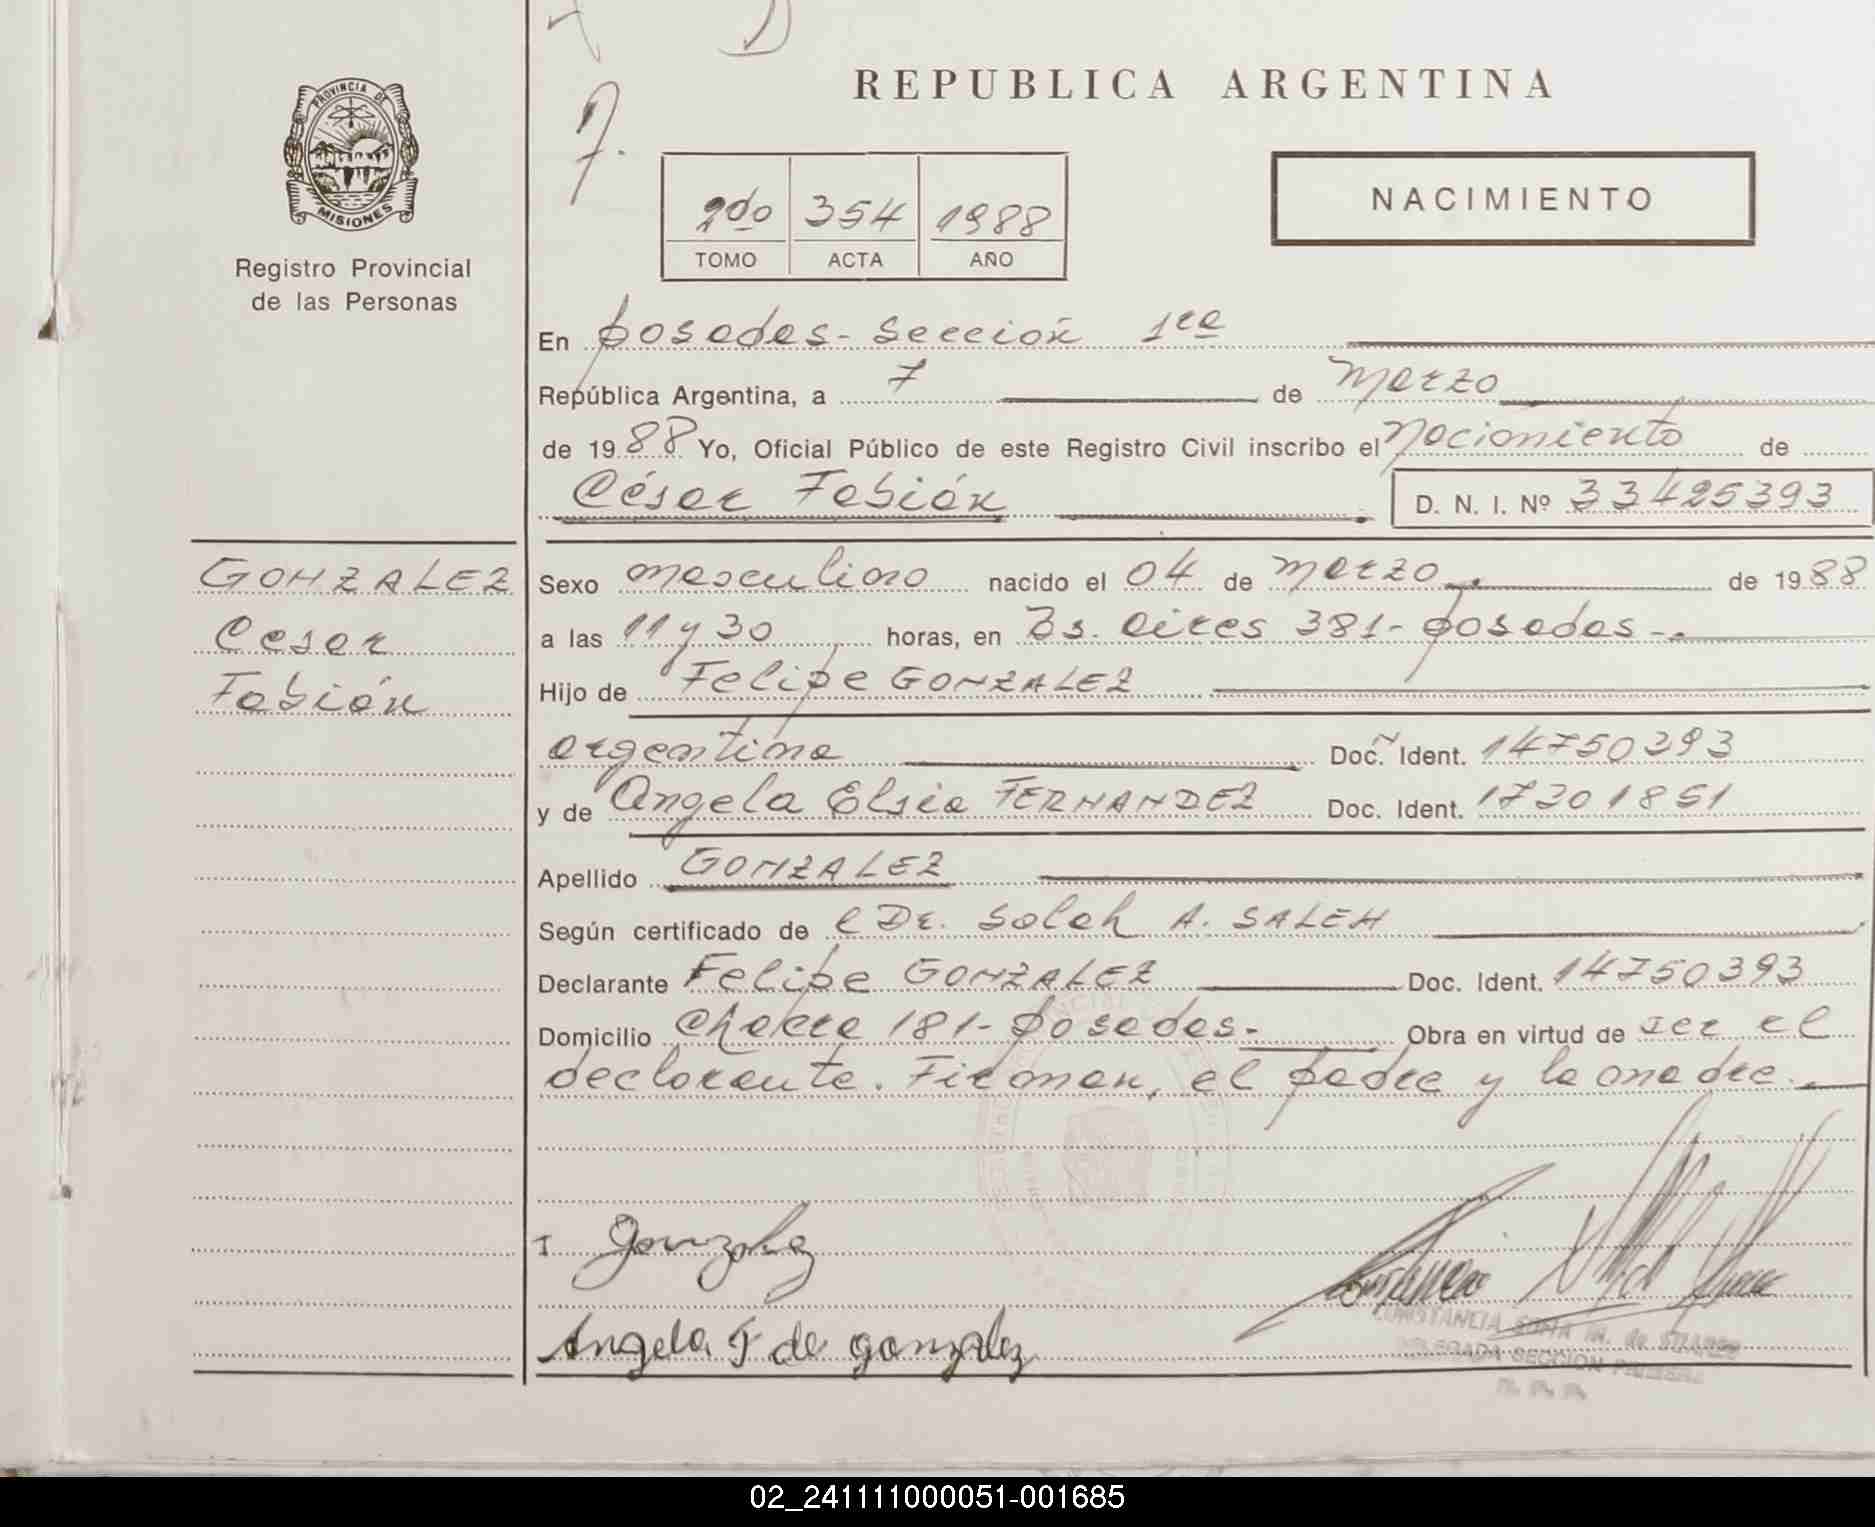 REPUBLICA ARGENTINA
PROVINCIA DE
MISIONES
Registro Provincial
de las Personas
7.
2do 354 1988
TOMO ACTA AÑO
NACIMIENTO
En Posadas - Sección 1ra
República Argentina, a 7 de Marzo
de 1988 Yo, Oficial Público de este Registro Civil inscribo el Nacimiento de
César Fabián D. N. I. Nº 33425393
GONZALEZ
Cesar
Fabián
Sexo masculino nacido el 04 de Marzo de 1988
a las 11 y 30 horas, en Bs. Aires 381 - Posadas -.
Hijo de Felipe GONZALEZ
argentina Doc. Ident. 14750393
y de Angela Elsia FERNANDEZ Doc. Ident. 17301851
Apellido GONZALEZ
Según certificado de l Dr. Saleh A. SALEH
Declarante Felipe GONZALEZ Doc. Ident. 14750393
Domicilio Chacra 181 - Posadas - Obra en virtud de ser el
declarante. Firman, el padre y la madre.
Gonzalez
Angela F de gonzalez
CONSTANCIA SOFIA M. de SUAREZ
DELEGADA SECCION PRIMERA
02_241111000051-001685